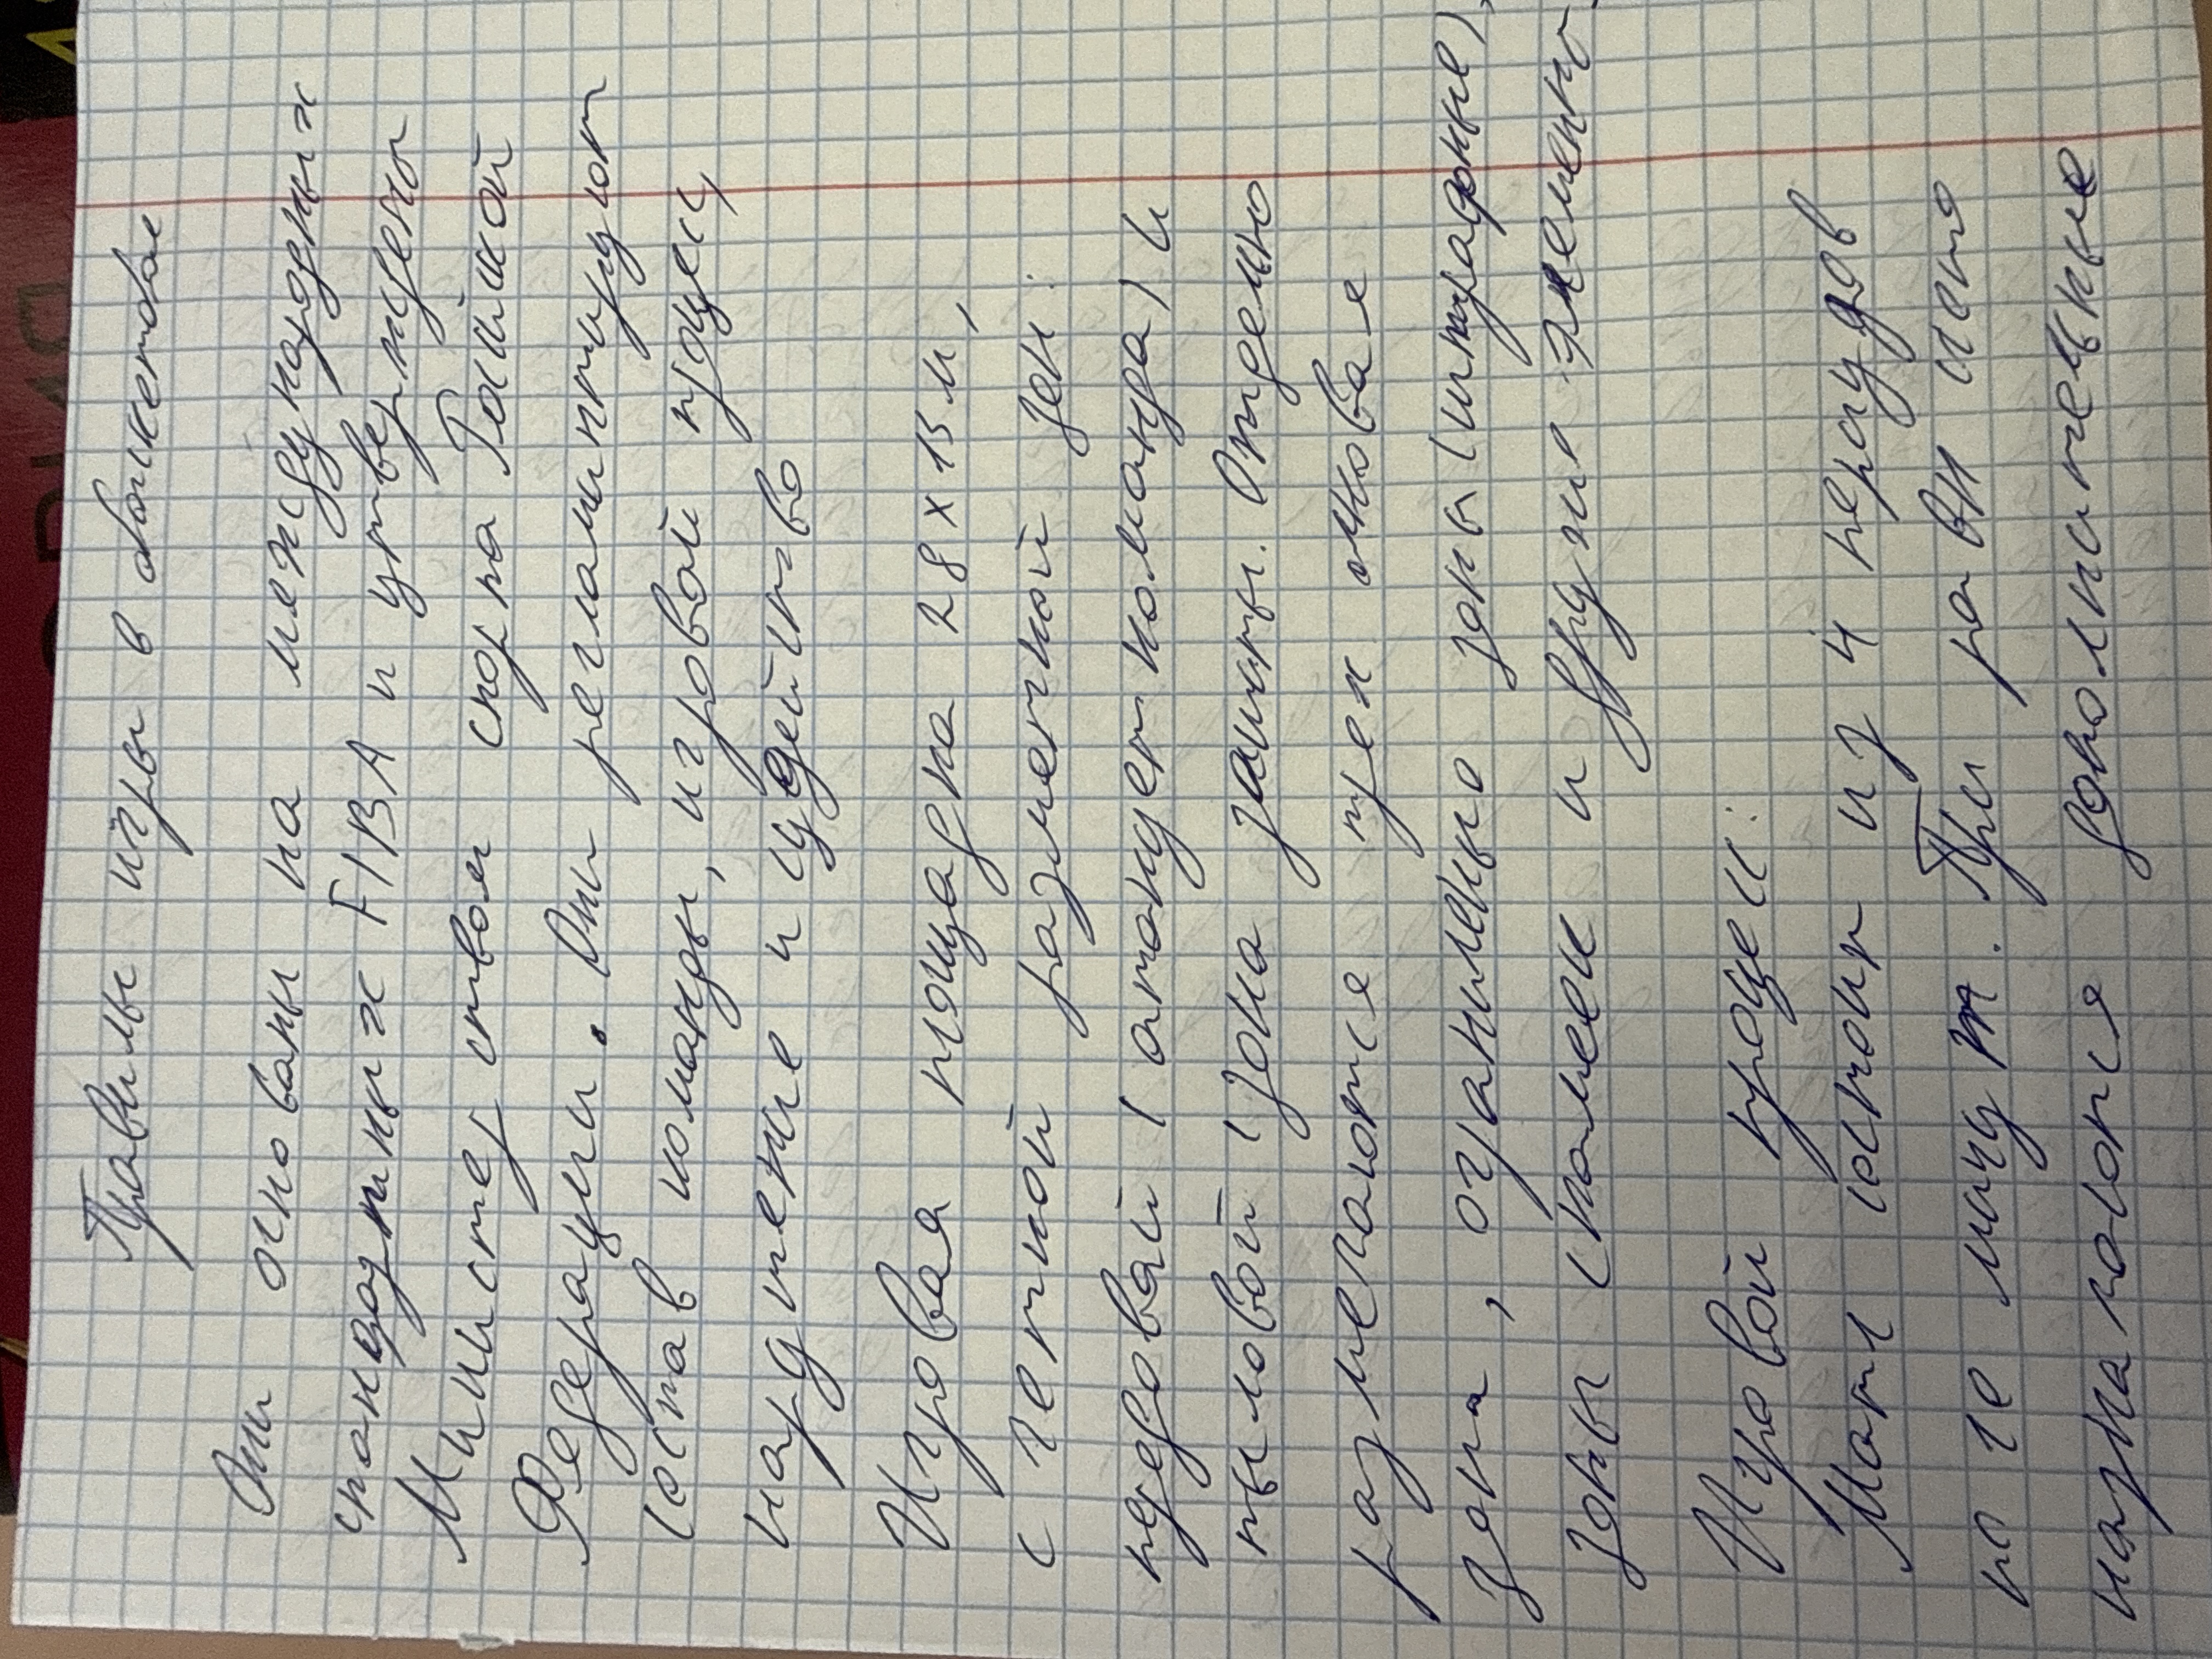 Правилы игры в баскетбол
Они основаны на международных
стандартных FIBA и утверждены
Министерством спорта Российской
Федерации. Они регламентируют
состав команды, игровой процесс,
нарушение и судейство
Игровая площадка 28 х 15 м,
с четкой разметкой зон:
передовой (атакует команда) и
тыловой (зона защиты. Отдельно
размечаются трех очковая
зона, ограничено зоны (штрафные),
зоны скамеек и другие элементы
Игровой процесс:
Матч состоит из 4 периодов
по 10 минут. При равн счете
назначаются дополнительные